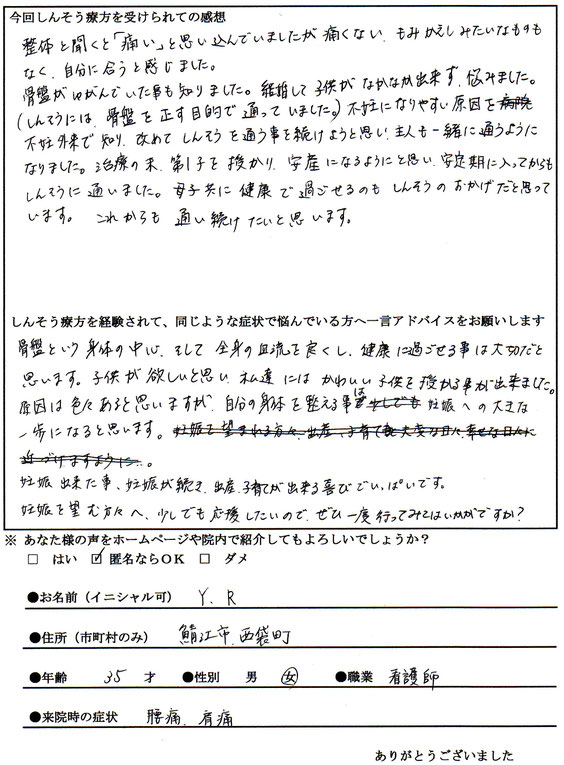 今回しんそう療方を受けられての感想
整体と聞くと「痛い」と思い込んでいましたが痛くない、もみかえしみたいなものも
なく、自分に合うと感じました。
骨盤がゆがんでいた事も知りました。結婚して子供がなかなか出来ず、悩みました。
(しんそうには、骨盤を正す目的で通っていました。)不妊になりやすい原因を
不妊外来で知り、改めてしんそうを通う事を続けようと思い、主人も一緒に通うように
なりました。治療の末、第1子を授かり、安産になるようにと思い、安定期に入ってからも
しんそうに通いました。母子共に健康で過ごせるのもしんそうのおかげだと思って
います。これからも通い続けたいと思います。
しんそう療方を経験されて、同じような症状で悩んでいる方へ一言アドバイスをお願いします
骨盤という身体の中心、そして全身の血流を良くし、健康に過ごせる事は大切だと
思います。子供が欲しいと思い、私達にはかわいい子供を授かる事が出来ました。
原因は色々あると思いますが、自分の身体を整える事は少しでも妊娠への大きな
一歩になると思います。妊娠を望まれる方々、出産、子育て大変な日々、幸せな日々に
近づけますように…。
妊娠出来た事、妊娠が続き、出産、子育てが出来る喜びでいっぱいです。
妊娠を望む方々へ、少しでも応援したいので、ぜひ一度行ってみてはいかがですか?
※ あなた様の声をホームページや院内で紹介してもよろしいでしょうか?
□ はい ☑ 匿名ならOK □ ダメ
●お名前(イニシャル可) Y. R
●住所(市町村のみ) 鯖江市 西袋町
●年齢 35 才 ●性別 男 女 ●職業 看護師
●来院時の症状 腰痛、肩痛
ありがとうございました